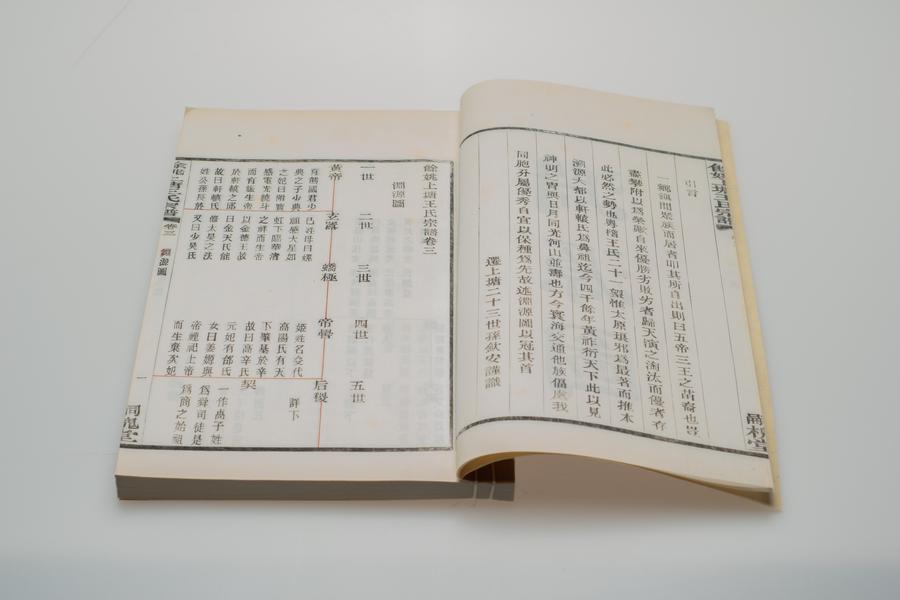 引言
一鄉詢聞聚族而居者叩其所自出則曰五帝三王之苗裔也豈
盡攀附以爲榮歟自來優勝劣敗劣者歸天演之淘汰而優者存
此必然之勢也粵稽王氏二十一望惟太原瑯邪爲最著而推本
溯源大都以軒轅氏爲鼻祖迄今四千餘年黃祚衍天下此以見
神明之冑與日月同光河山並壽也方今寰海交通他族偪處我
同胞分屬優秀自宜以保種爲先故述淵源圖以冠其首
遷上塘二十三世孫歛安謹識
餘姚上塘王氏宗譜
餘姚上塘王氏宗譜卷三
淵源圖
一世 二世 三世 四世 五世
黃帝 玄囂 蟜極 帝嚳 后稷
有熊國君少
典之子少典
之妃曰附寶
感電光繞斗
而有娠生帝
於軒轅之邱
故曰軒轅氏
姓公孫長於
己姓母曰嫘
祖感大星如
虹下臨華渚
之祥而生帝
以金德王故
曰金天氏能
脩太昊之法
又曰少昊氏
姬姓名夋代
高陽氏有天
下肇基於辛
故曰高辛氏
元妃有邰氏
女曰姜嫄與
帝禋祀上帝
而生棄次妃
詳下
契
一作卨子姓
爲舜司徒是
爲商之始祖
餘姚上塘王氏宗譜 卷三 淵源圖
一